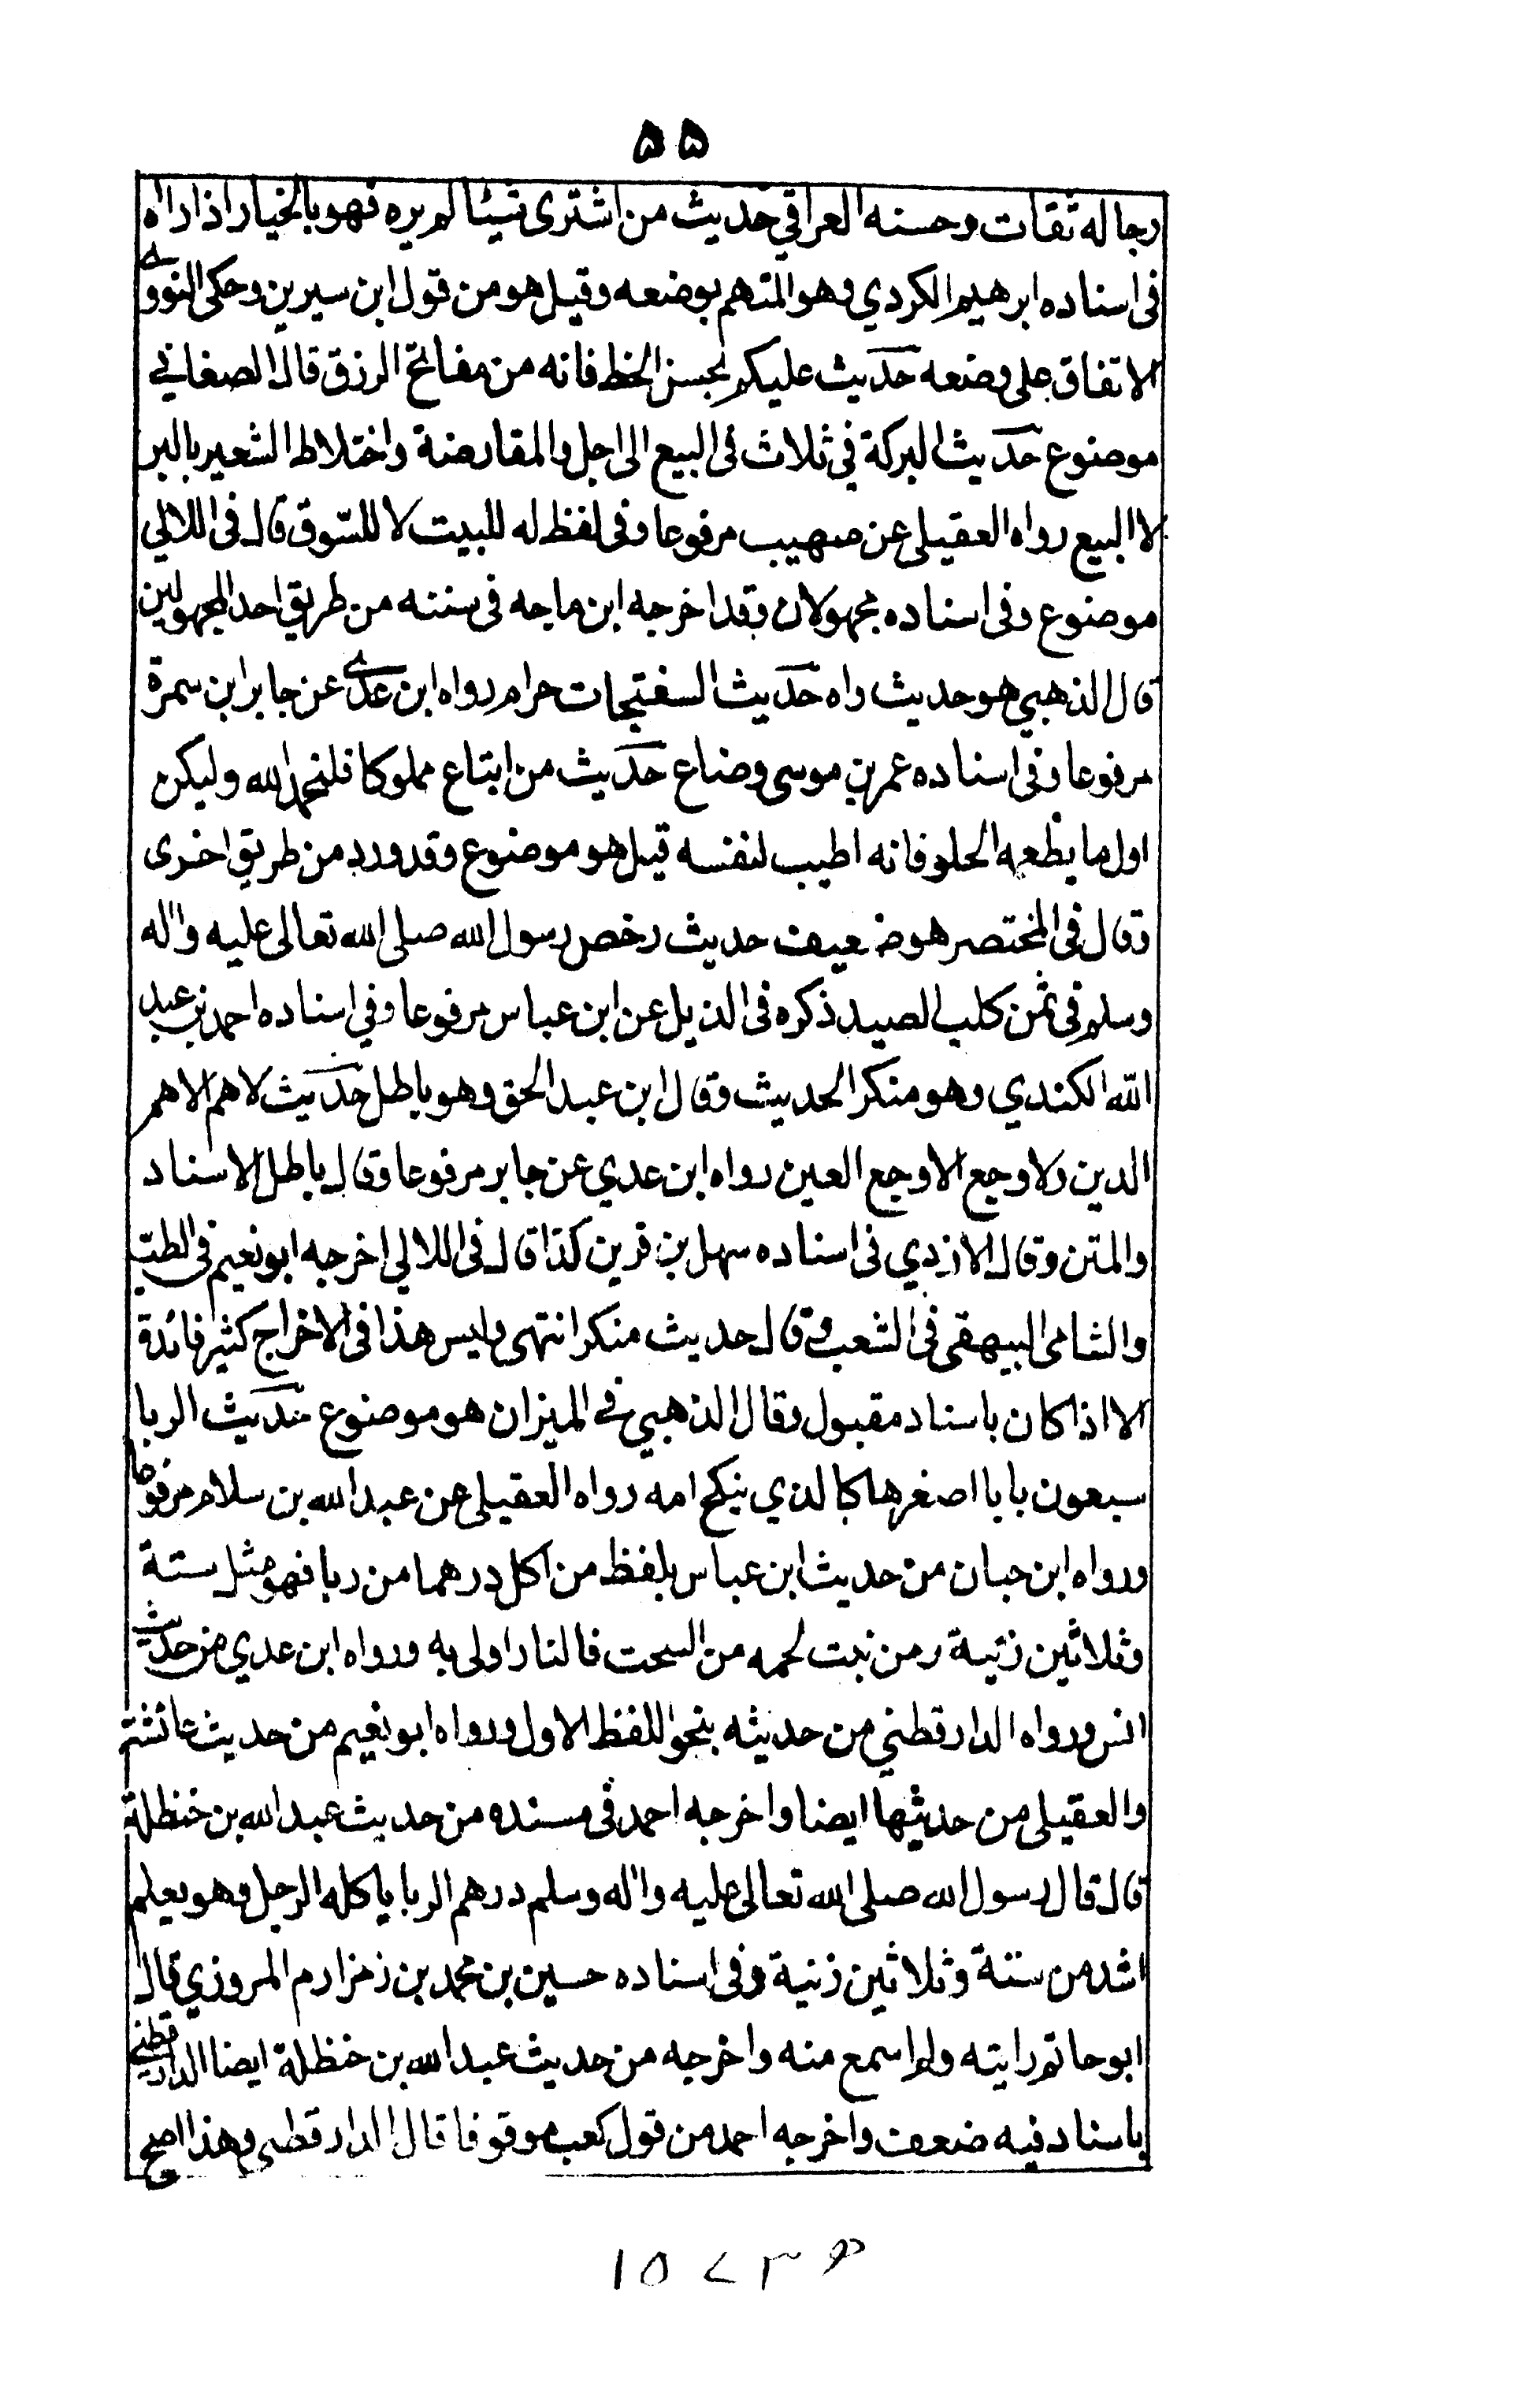 ۵۵
رجاله ثقات وحسنه العراقي حديث من اشترى شيئا لم يره فهو بالخيار اذا راه
فى اسناده ابرهيم الكردي وهو المتهم بوضعه وقيل هو من قول ابن سيرين وحكى النووي
الاتفاق على وضعه حديث عليكم بحسن الخط فانه من مفاتح الرزق قال الصغاني
موضوع حديث البركة في ثلاث فى البيع الى اجل والمقارضة واختلاط الشعير بالبر
لا البيع رواه العقيلى عن صهيب مرفوعا وفى لفظ له للبيت لا للسّوق قال فى اللالي
موضوع وفى اسناده مجهولان وقد اخرجه ابن ماجه فى سننه من طريق احد المجهولين
قال الذهبي هو حديث واه حديث السفتجات حرام رواه ابن عدي عن جابر ابن سمرة
مرفوعا وفى اسناده عمر بن موسى وضاع حديث من ابتاع مملوكا فلنحمد الله وليكن
اول ما يطعمه الحلو فانه اطيب لنفسه قيل هو موضوع وقد ورد من طريق اخرى
وقال فى المختصر هو ضعيف حديث رخص رسول الله صلى الله تعالى عليه واله
وسلم فى ثمن كلب الصيد ذكره فى الذيل عن ابن عباس مرفوعا وفي اسناده احمد بن عبد
الله الكندي وهو منكر الحديث وقال ابن عبد الحق وهو باطل حديث لا هم الا هم
الدين ولا وجع الا وجع العين رواه ابن عدي عن جابر مرفوعا وقال باطل الاسناد
والمتن وقال الازدي فى اسناده سهل بن قرين كذا قال فى اللالي اخرجه ابو نعيم فى الطب
والثامى البيهقى فى الشعب وقال حديث منكر انتهى وليس هذا فى الاخراج كثير فائدة
الا اذا كان باسناد مقبول وقال الذهبي في الميزان هو موضوع حديث الربا
سبعون بابا اصغرها كالذي ينكح امه رواه العقيلى عن عبد الله بن سلام مرفوعا
ورواه ابن حبان من حديث ابن عباس بلفظ من اكل درهما من ربا فهو مثل ستة
وثلاثين زنية ومن نبت لحمه من السحت فالنار اولى به ورواه ابن عدي من حديث
انس ورواه الدارقطني من حديثه بنحو اللفظ الاول ورواه ابو نعيم من حديث عائشة
والعقيلى من حديثها ايضا واخرجه احمد فى مسنده من حديث عبد الله بن حنظلة
قال قال رسول الله صلى الله تعالى عليه واله وسلم درهم الربا ياكله الرجل وهو يعلم
اشد من ستة وثلاثين زنية وفى اسناده حسين بن محمد بن المروزي قال
ابو حاتم رايته ولم اسمع منه واخرجه من حديث عبد الله بن حنظلة ايضا الدارقطني
باسناد فيه ضعف واخرجه احمد من قول كعب موقوفا قال الدارقطى وهذا اصح